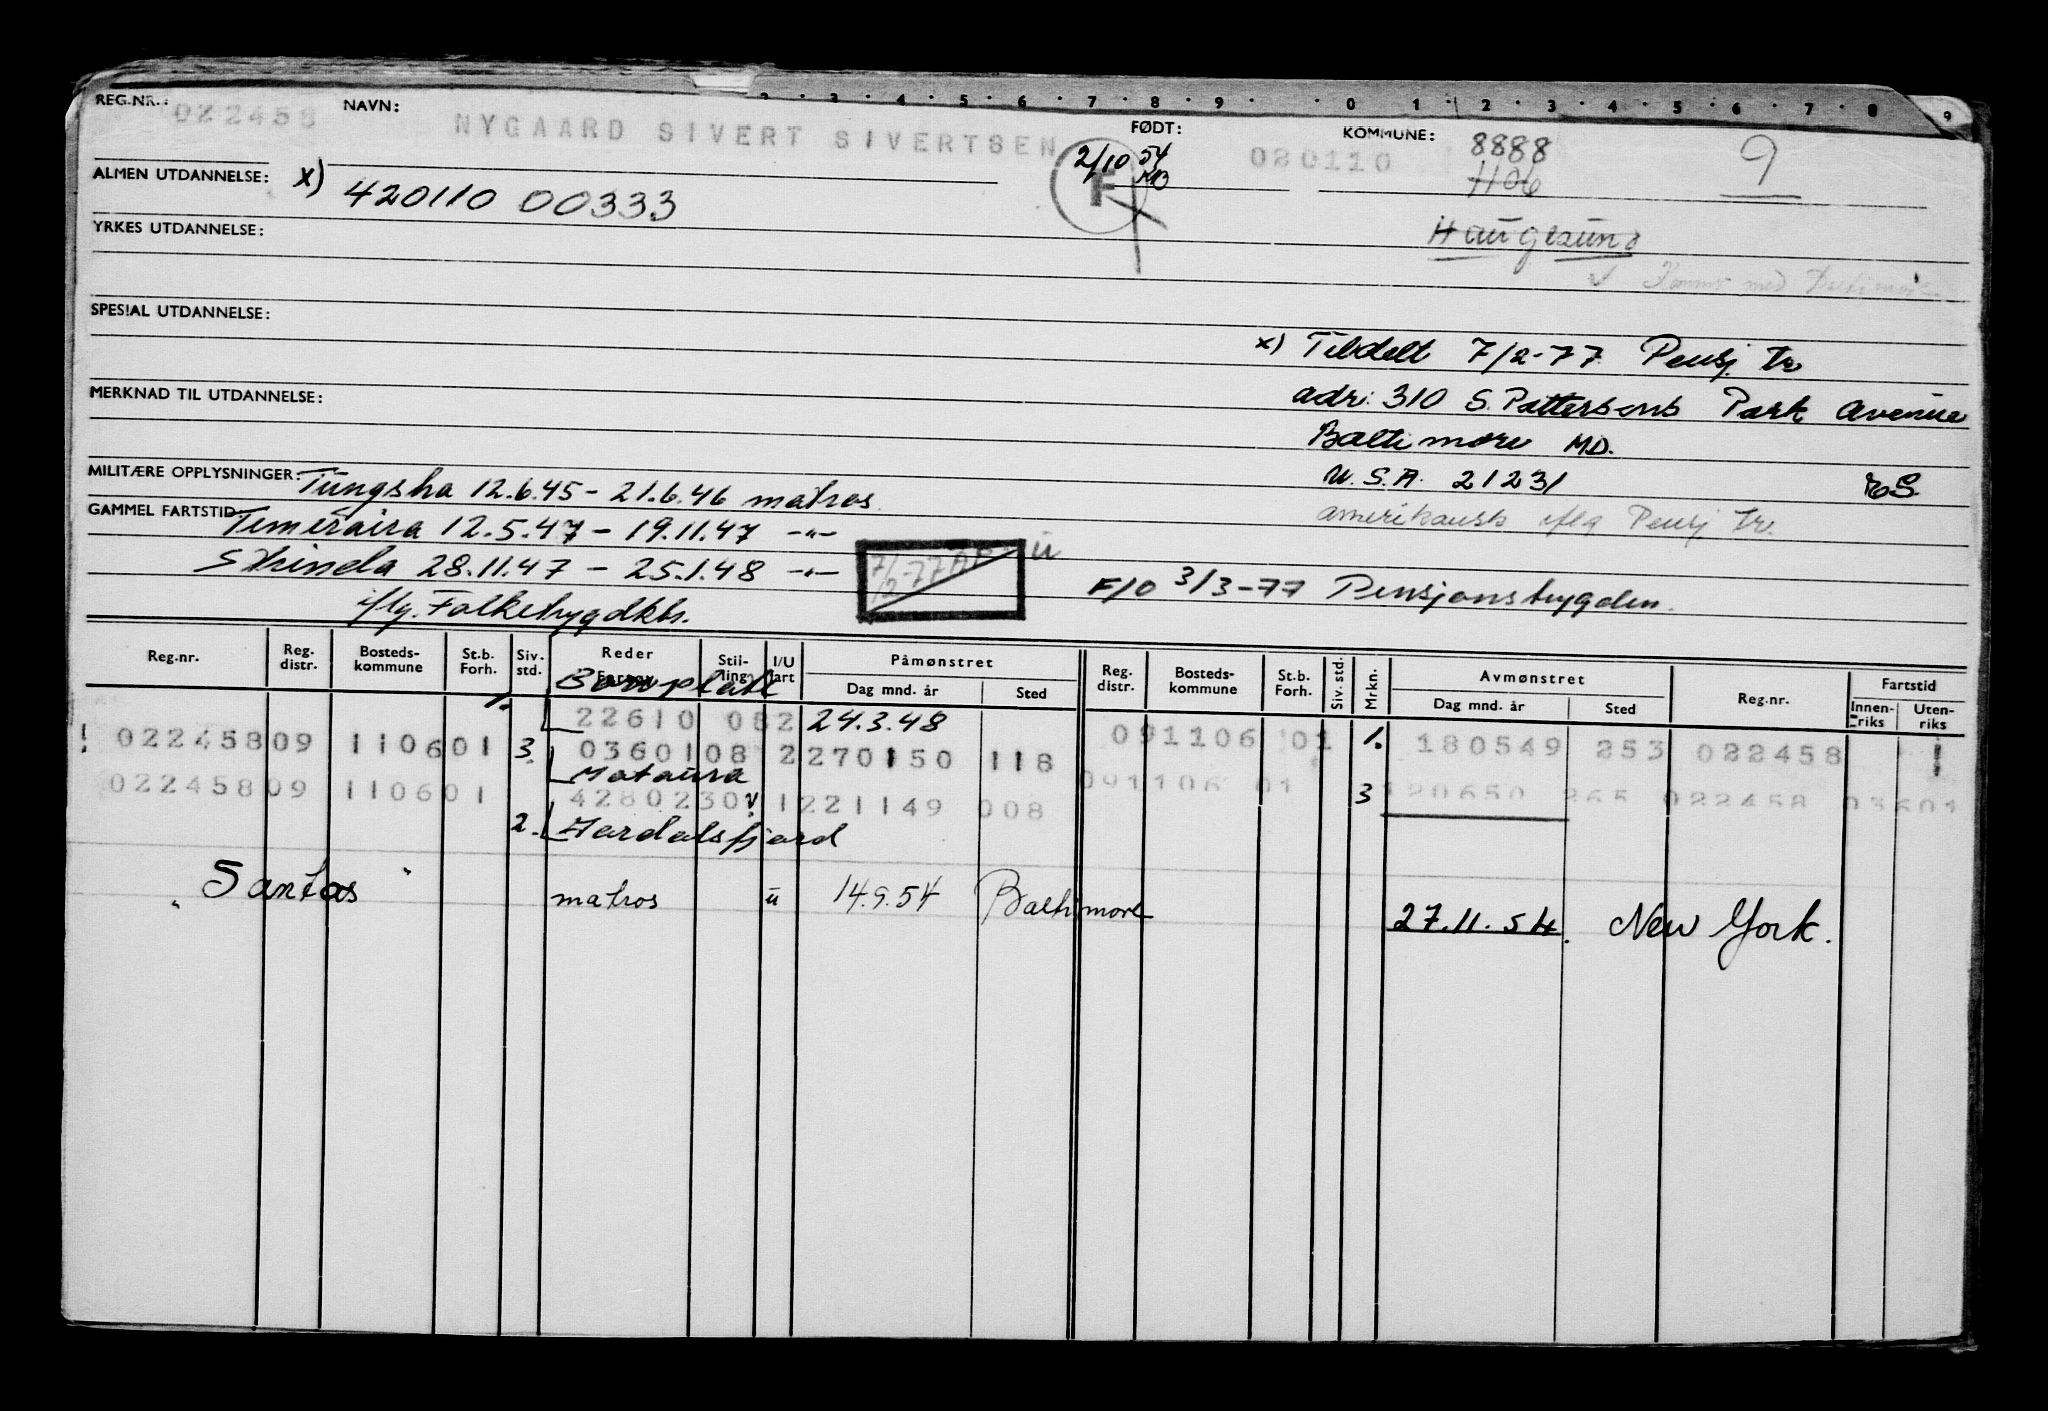 2 · 3 · 4 · 5 · 6 · 7 · 8 · 9 · · 0 · 1 · 2 · 3 · 4 · 5 · 6 · 7 · 8 · 9
REG.NR.: 022458 NAVN: NYGAARD SIVERT SIVERTSEN FØDT: 020110 KOMMUNE: 8888 9
2/10 54 F
1106
ALMEN UTDANNELSE: x) 420110 00333
YRKES UTDANNELSE: Haugesund
SPESIAL UTDANNELSE:
x) Tildelt 7/2-77 Pensj. tr
MERKNAD TIL UTDANNELSE: adr: 310 S. Pattersens Park Avenue
Baltimore MD.
MILITÆRE OPPLYSNINGER: Tungsha 12.6.45 - 21.6.46 matros. U.S.A. 21231
GAMMEL FARTSTID: Temeraira 12.5.47 - 19.11.47 -"- amerikansk iflg Pensj tr.
Skinda 28.11.47 - 25.1.48 -"- 7/2-77 F/O 3/3-77 Pensjonstrygden.
iflg. Folketrygdktr.
Reg.nr. Reg. distr. Bosteds-kommune St.b. Forh. Siv. std. Reder Stil-ling I/U fart Påmønstret Dag mnd. år Sted Reg. distr. Bosteds-kommune St.b. Forh. Siv. std. Mrkn. Avmønstret Dag mnd. år Sted Reg.nr. Fartstid Innen-riks Uten-riks
1. Bonplatt
22610 082 24.3.48
022458 09 1106 01 3. 0360108 2 270150 118 091106 01 1. 180549 253 022458
Mataura
022458 09 1106 01 4280230 1 221149 008 091106 01 3 120650 265 022458 03601
2. Aardalsfjord
"Santos" matros u 14.9.54 Baltimore 27.11.54. New York.